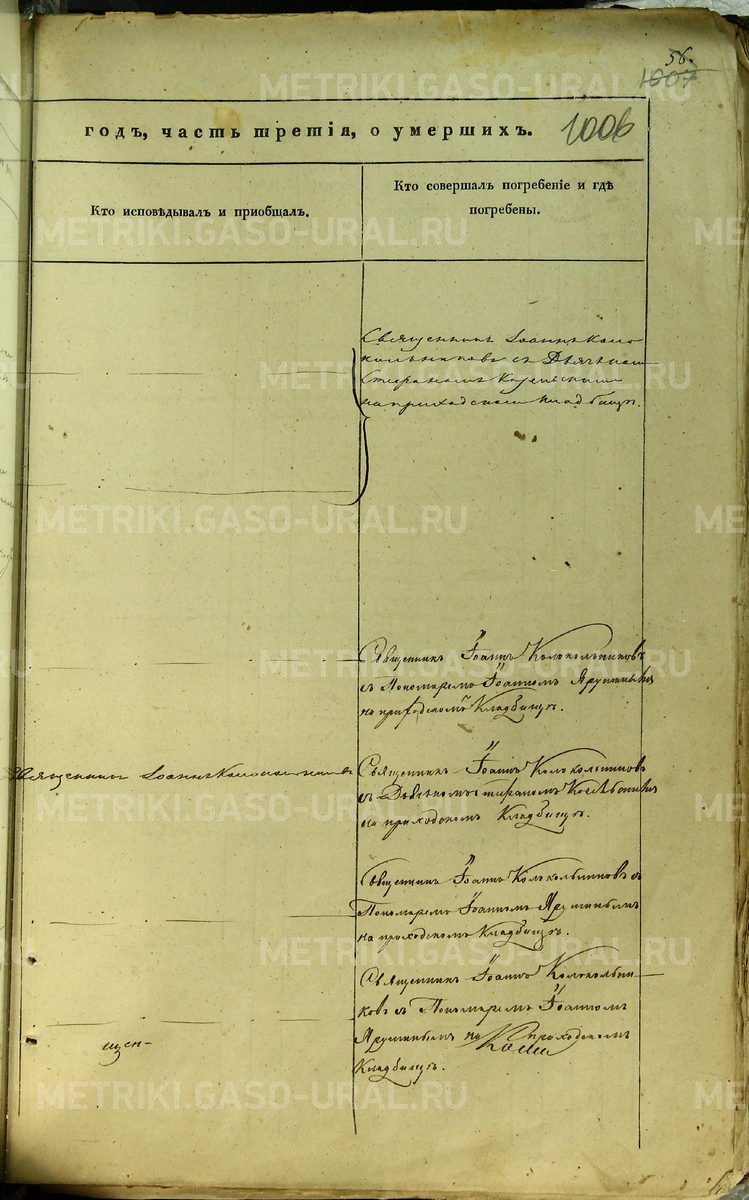 56.
1007
годъ, часть третія, о умершихъ. 1006
Кто исповѣдывалъ и пріобщалъ.
Кто совершалъ погребеніе и гдѣ
погребены.
Священникъ Іоаннъ Коло
кольниковъ съ Дьячкомъ
Стефаномъ
на приходскомъ кладбищѣ.
Священникъ Іоаннъ Колокольниковъ
съ Пономаремъ Іоанномъ
на приходскомъ Кладбищѣ.
Священникъ Іоаннъ Колокольниковъ
Священникъ Іоаннъ Колокольниковъ
съ Дьячкомъ Стефаномъ
на приходскомъ Кладбищѣ.
Священникъ Іоаннъ Колокольниковъ съ
Пономаремъ Іоанномъ
на приходскомъ Кладбищѣ.
Священникъ Іоаннъ Колокольни
ковъ съ Пономаремъ Іоанномъ
на приходскомъ
щен-
Кладбищѣ.
METRIKI.GASO-URAL.RU